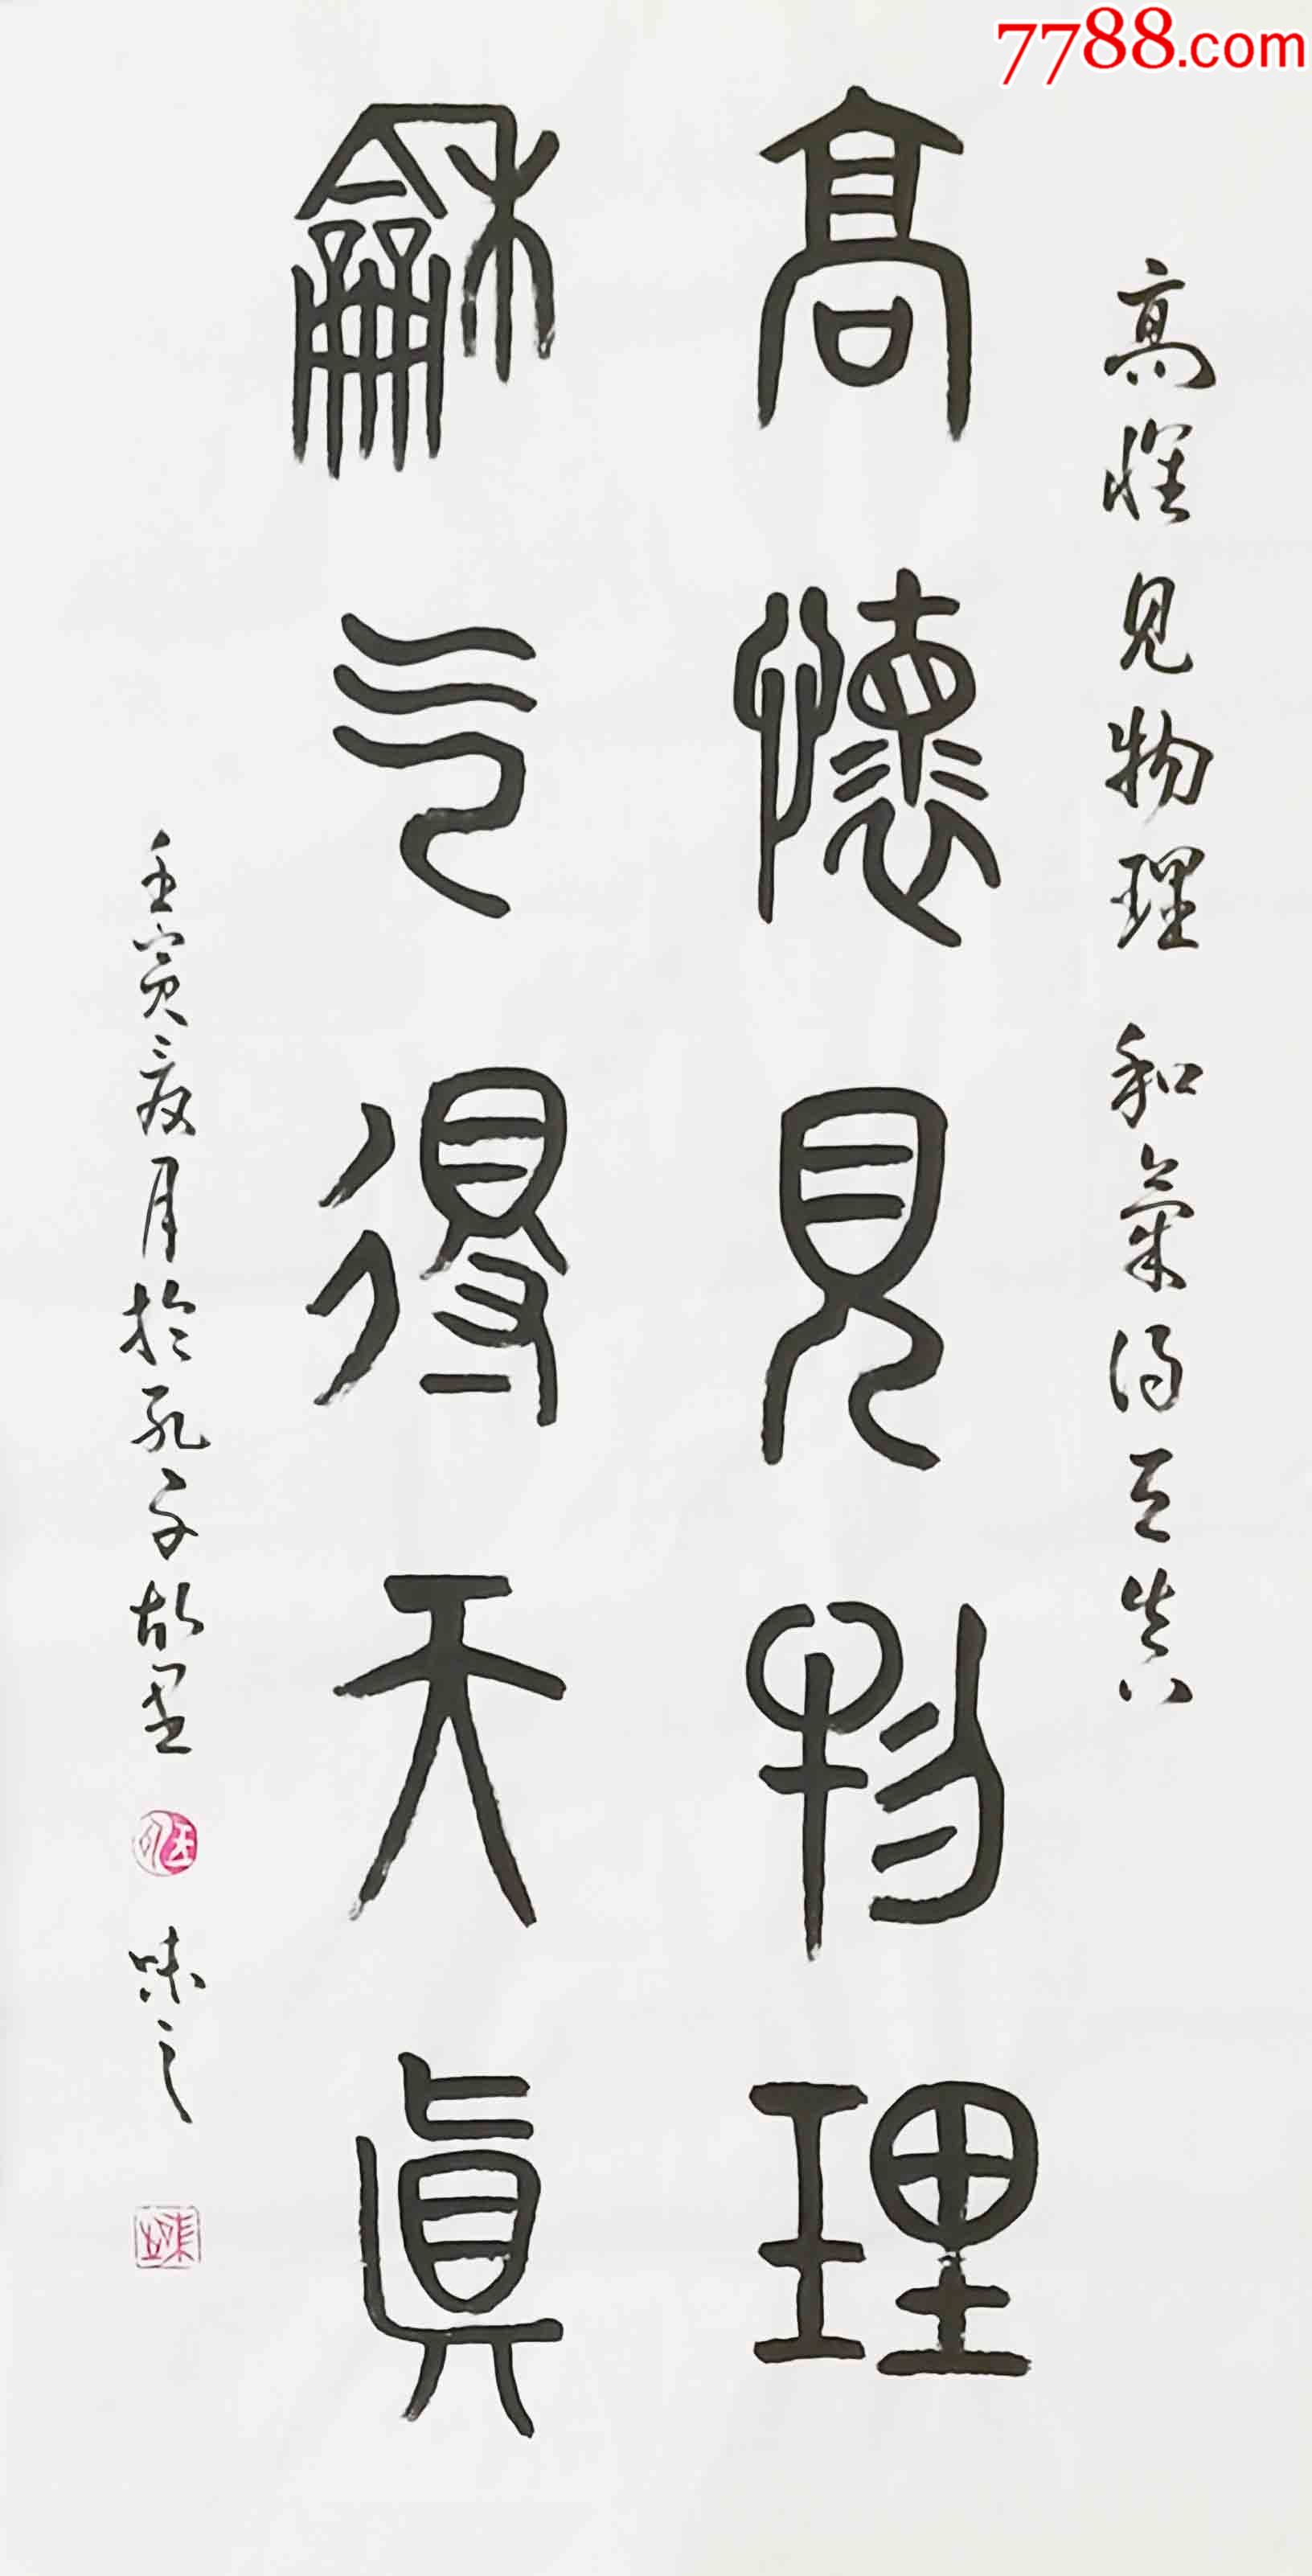 7788.com
高懷見物理和氣得天真
高懷見物理
龢气得天眞
壬寅夏月於孔子故里
味之